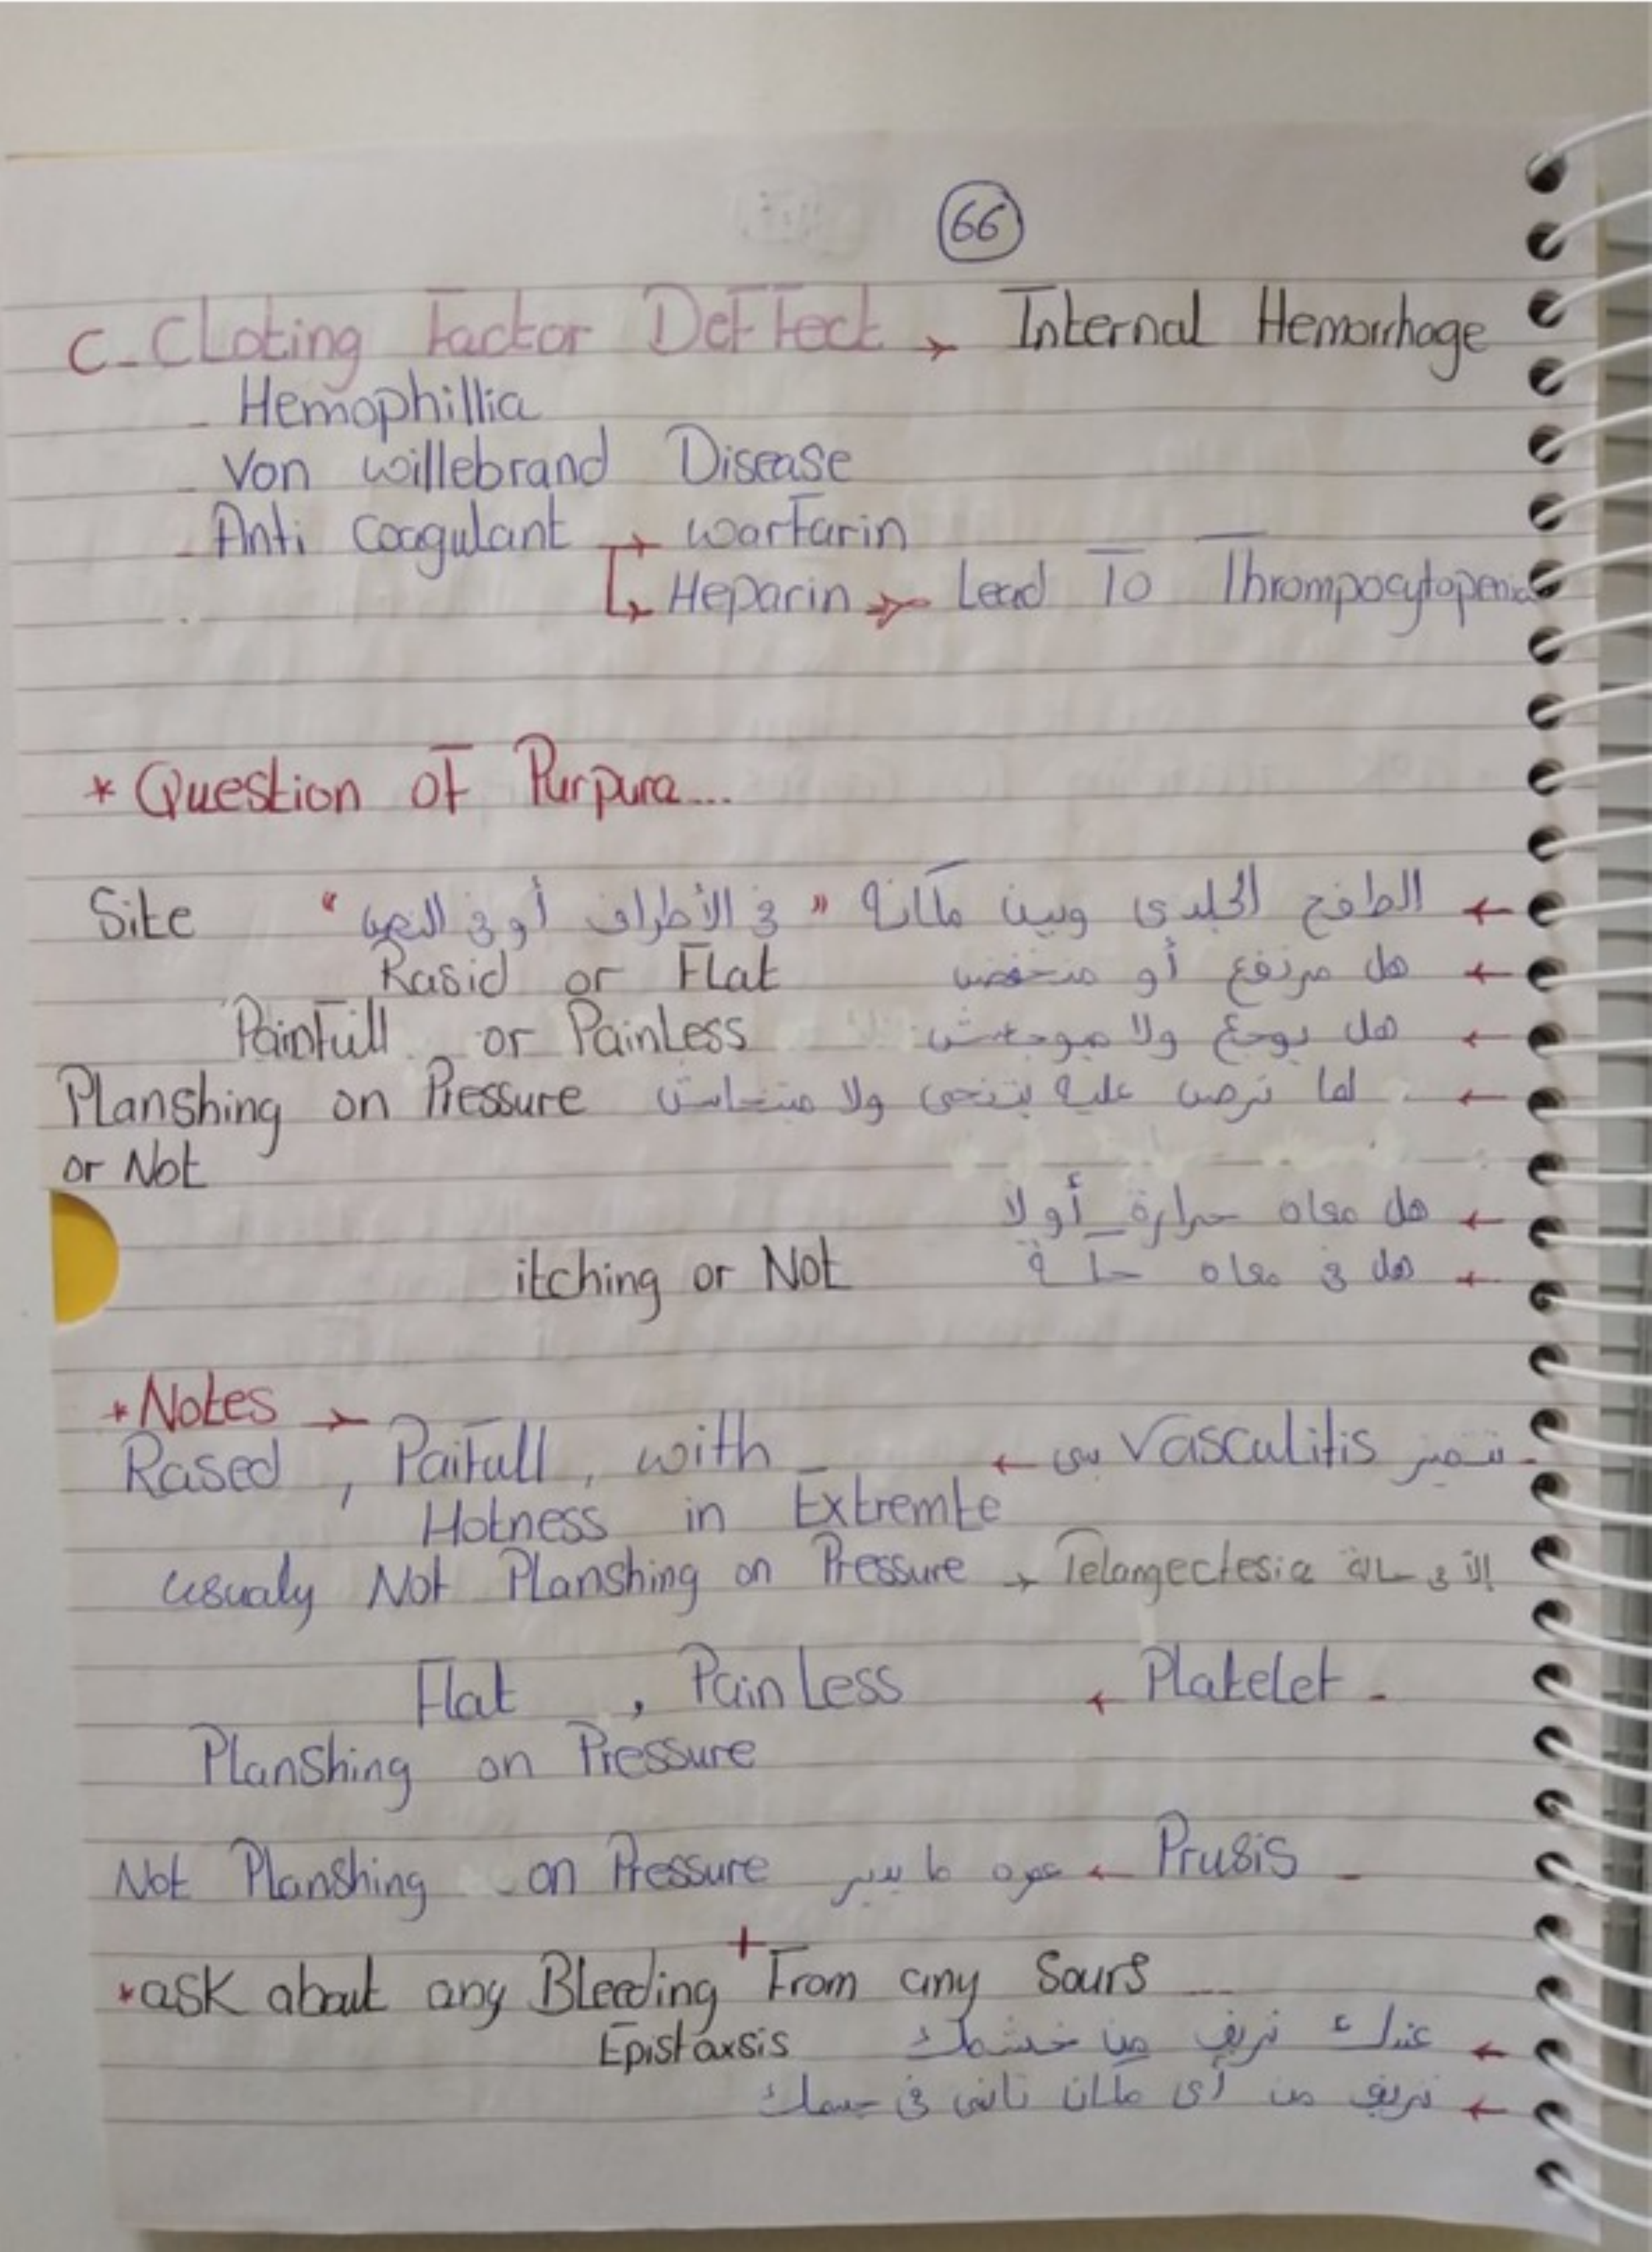 66
C- Cloting Factor Deffect → Internal Hemorrhage
- Hemophillia
- Von willebrand Disease
- Anti Coagulant → warfarin
↳ Heparin → Lead To Thrompocytopenia
* Question of Purpura...
Site ← الطفح الجلدى وبين مكانه " فى الأطراف أو فى
Rasid or Flat ← هل مرتفع أو منخفض
Painfull or Painless ← هل يوجع ولا مبوجعش
Planshing on Pressure ← لما ترص عليه بتنحى ولا
or Not
← هل معاه حرارة أولا
itching or Not ← هل فى معاه حكة
* Notes →
Rased , Paifull , with ← تتميز Vasculitis بى -
Hotness in Extremte
usualy Not Planshing on Pressure → Telangectesia إلا فى حالة
Flat , PainLess ← Platelet -
Planshing on Pressure
Not Planshing on Pressure ← Prusis -
* ask about any Bleeding + From any Sours ...
Epistaxsis ← عندك نزيف من خشمك
← نزيف من أى مكان تانى فى جسمك